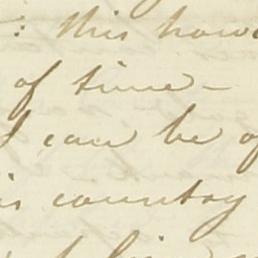 : this how
of time –
I can be of
is country